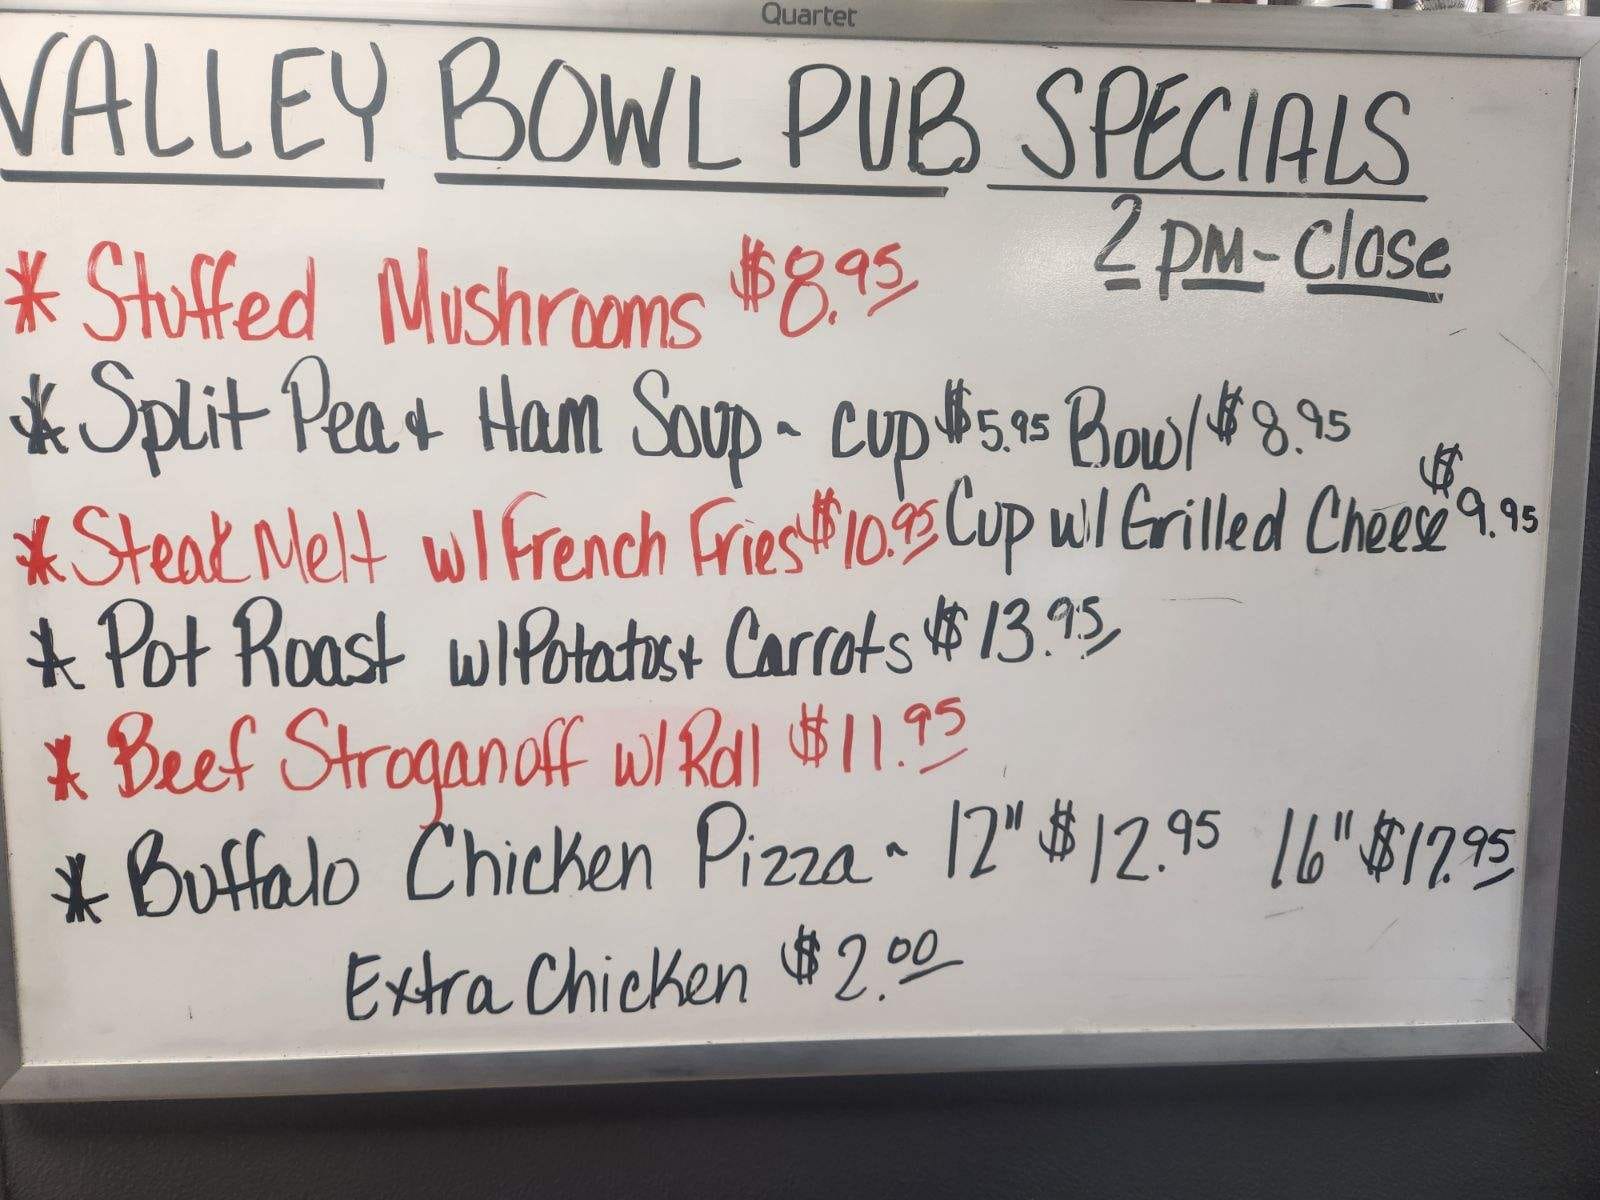 Quartet
VALLEY BOWL PUB SPECIALS
2 PM - Close
* Stuffed Mushrooms $8.95
* Split Pea & Ham Soup ~ cup $5.95 Bowl $8.95
Cup w/ Grilled Cheese $9.95
* Steak Melt w/ French Fries $10.95
* Pot Roast w/ Potatos & Carrots $13.95
* Beef Stroganoff w/ Roll $11.95
* Buffalo Chicken Pizza ~ 12" $12.95 16" $17.95
Extra Chicken $2.00